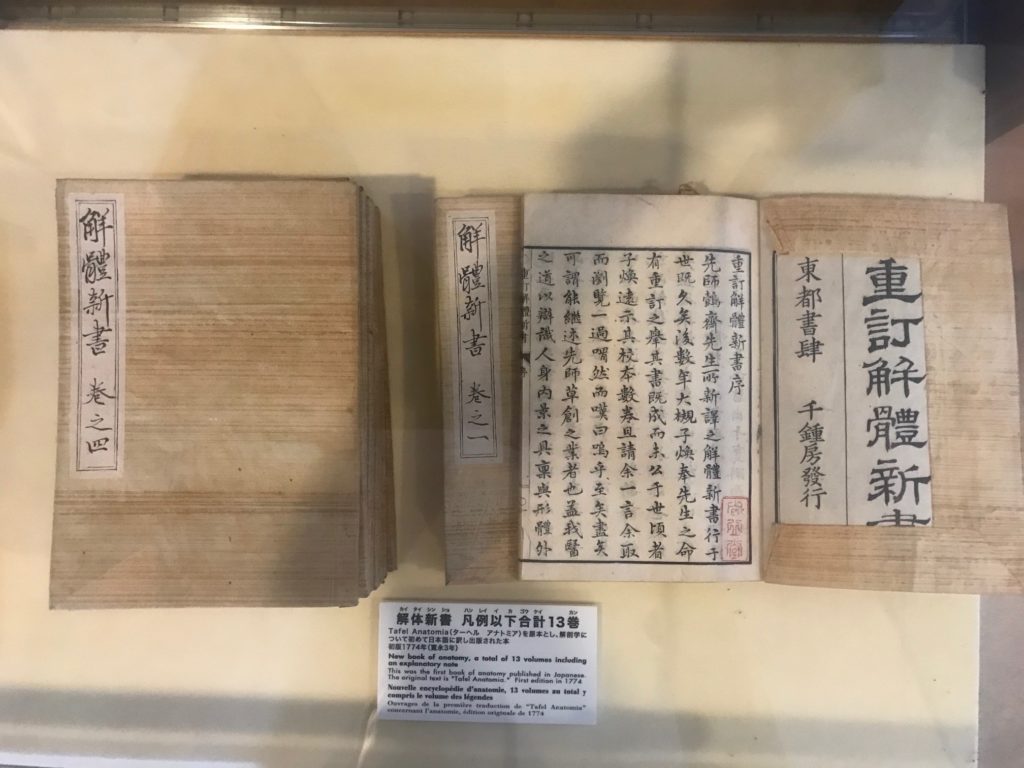 解體新書 卷之四
解體新書 卷之一
重訂解體新書
東都書肆 千鍾房發行
重訂解體新書序
先師鷧齋先生所新譯之解體新書行于
世既久矣後數年大槻子煥奉先生之命
有重訂之擧其書既成而未公于世頃者
子煥遠示其校本數卷且請余一言余取
而瀏覽一過喟然而嘆曰嗚乎至矣盡矣
可謂能繼述先師草創之業者也盖我醫
之道以辯識人身内景之具稟與形體外
カイ タイ シン ショ ハン レイ イ カ ゴウ ケイ カン
解体新書 凡例以下合計13巻
Tafel Anatomia(ターヘル アナトミア)を原本とし、解剖学に
ついて初めて日本語に訳し出版された本
初版1774年(寛永3年)
New book of anatomy, a total of 13 volumes including
an explanatory note
This was the first book of anatomy published in Japanese.
The original text is "Tafel Anatomia." First edition in 1774
Nouvelle encyclopédie d'anatomie, 13 volumes au total y
compris le volume des légendes
Ouvrages de la première traduction de "Tafel Anatomia"
concernant l'anatomie, édition originale de 1774